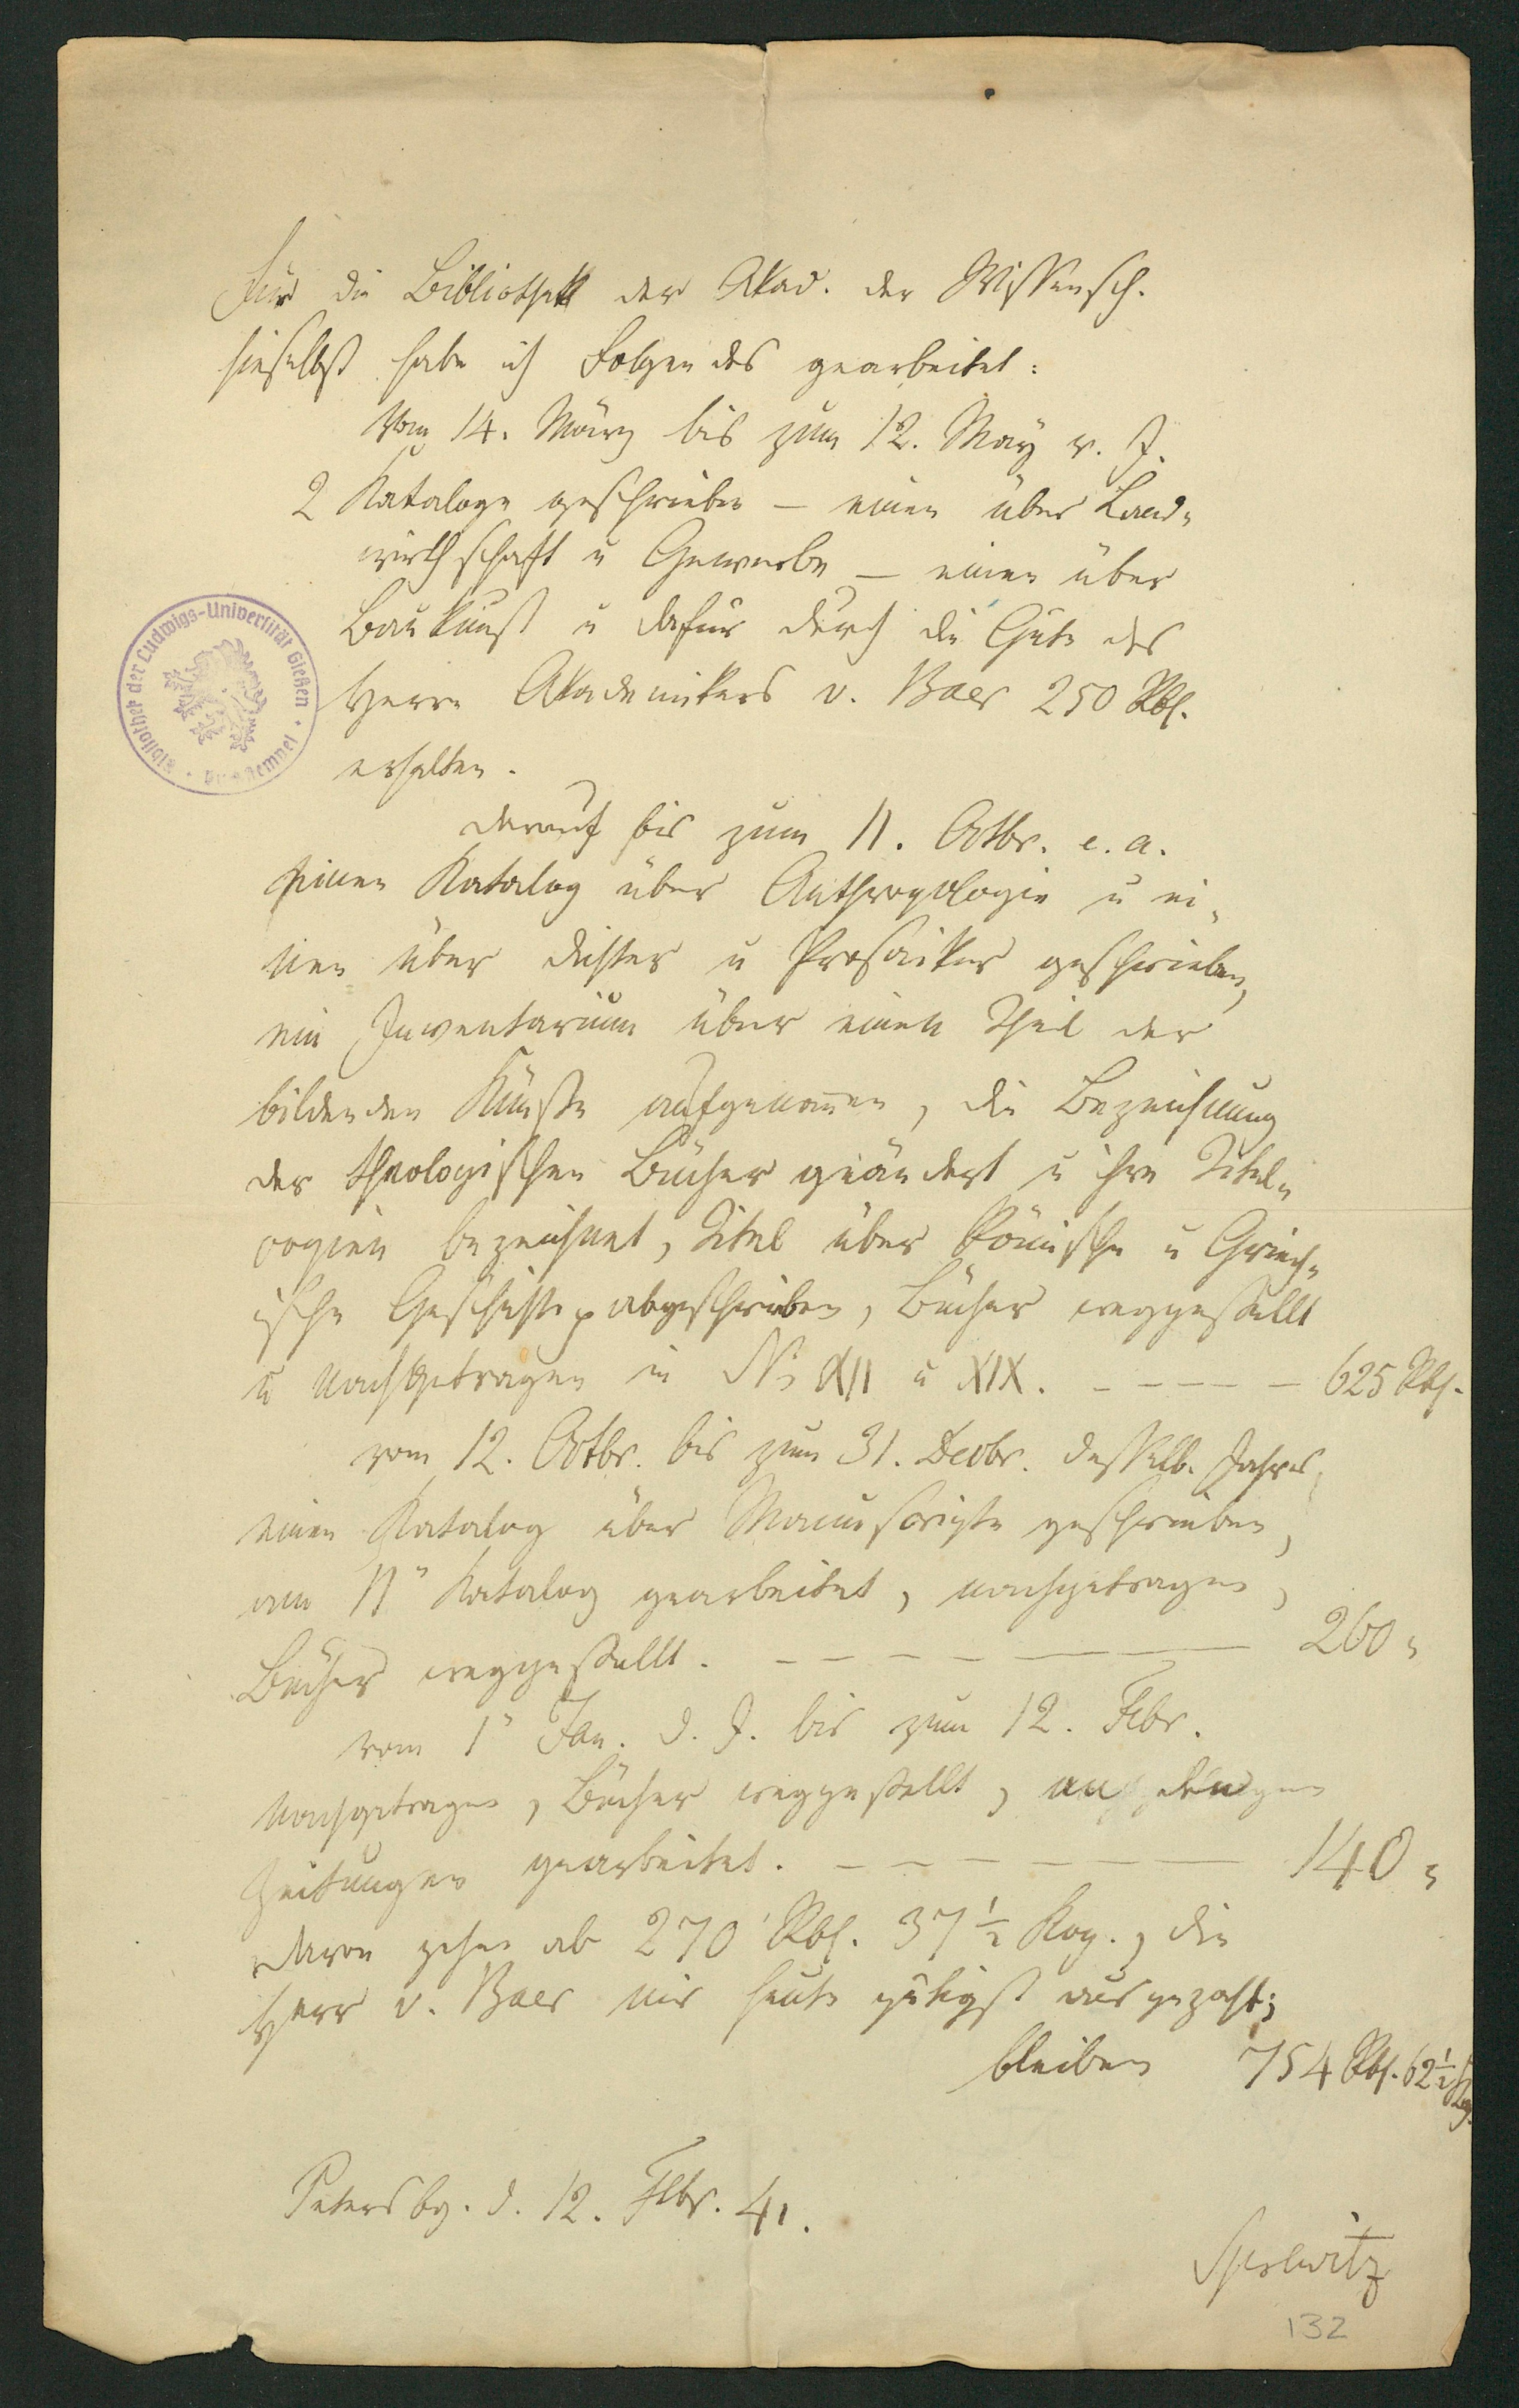 Für die Bibliothek der Akad. der Wissensch.
hieselbst habe ich Folgendes gearbeitet:
Vom 14. März bis zum 12. May v. J.
2 Kataloge geschrieben — einen über Land-
wirthschaft u Gewerbe — einen über
Baukunst u dafür durch die Güte des
Herrn Akademikers v. Baer 250 Rbl.
erhalten.
Darauf bis zum 11. Octbr. e. a.
einen Katalog über Anthropologie u ei-
nen über Dichter u Prosaiker geschrieben,
ein Inventarium über einen Theil der
bildenden Künste aufgenommen, die Bezeichnung
der theologischen Bücher geändert u ihre Titel-
copien bezeichnet, Titel über Römische u Griech-
ische Geschichte abgeschrieben, Bücher weggestellt
u nachgetragen in No XII u XIX. ----- 625 Rbl.
vom 12. Octbr. bis zum 31. Decbr. desselb. Jahres,
einen Katalog über Manuscripte geschrieben,
am 11" Katalog gearbeitet, nachgetragen,
Bücher weggestellt. ------- 260 "
vom 1" Jan. d. J. bis zum 12. Febr.
nachgetragen, Bücher weggestellt, an
Zeitungen gearbeitet. ------- 140 "
Davon gehen ab 270 Rbl. 37 1/2 Kop., die
Herr v. Baer mir heute gütigst ausgezahlt;
bleiben 754 Rbl. 62 1/2 Kop.
Petersbg. d. 12. Febr. 41.
Sperlwitz
132
Bibliothek der Ludwigs-Universität Gießen